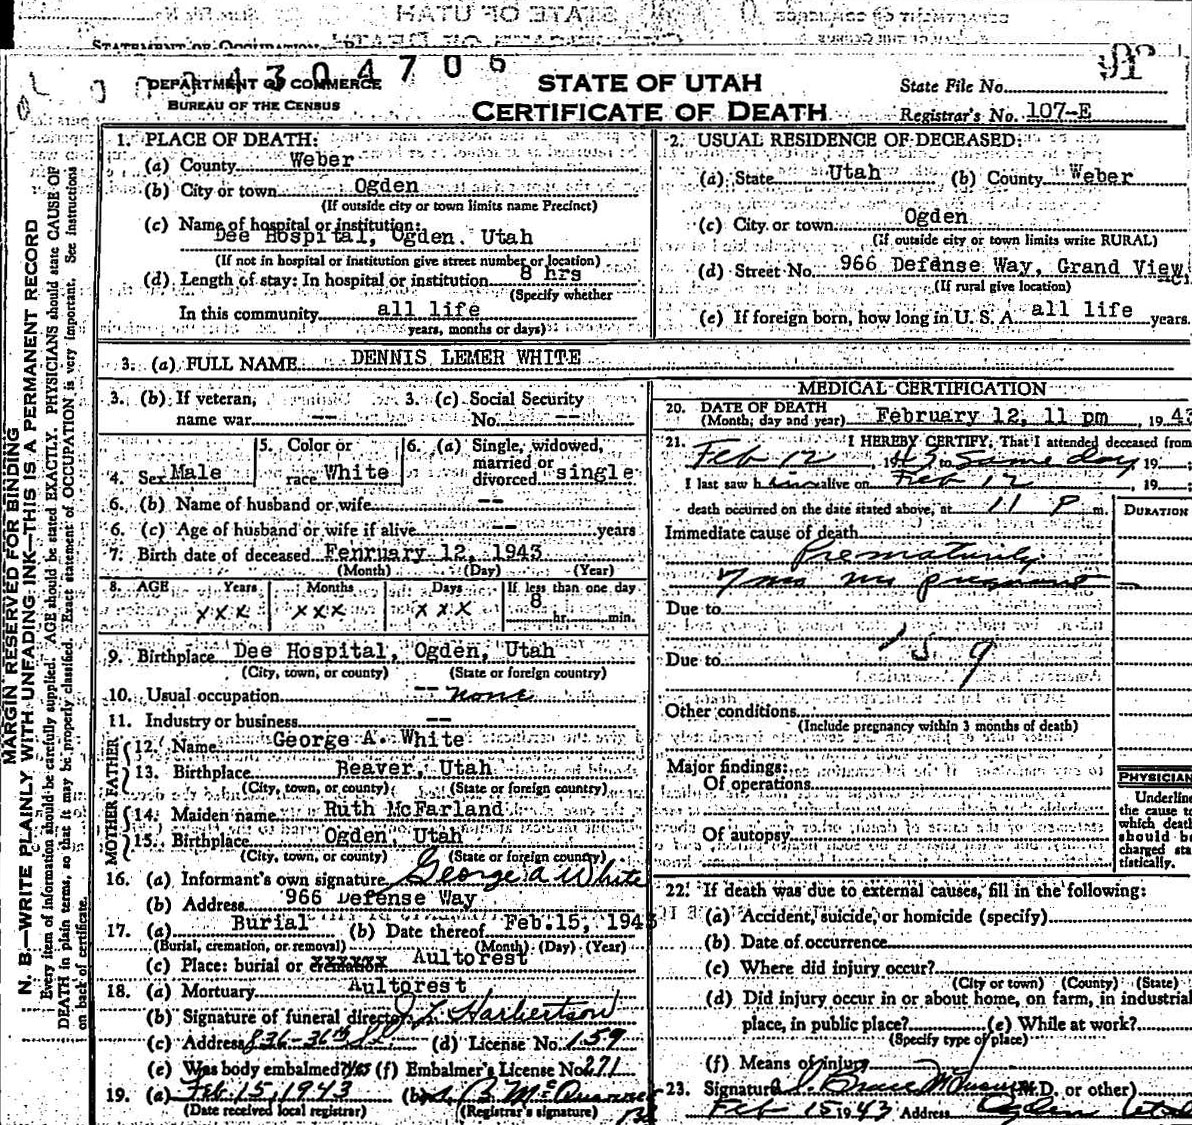 STATE OF UTAH
STATEMENT OF OCCUPATION
4304706
DEPARTMENT OF COMMERCE
BUREAU OF THE CENSUS
STATE OF UTAH
CERTIFICATE OF DEATH
State File No.
Registrar's No. 107-E
MARGIN RESERVED FOR BINDING
N. B.—WRITE PLAINLY WITH UNFADING INK—THIS IS A PERMANENT RECORD
Every item of information should be carefully supplied. AGE should be stated EXACTLY. PHYSICIANS should state CAUSE OF
DEATH in plain terms, so that it may be properly classified. Exact statement of OCCUPATION is very important. See Instructions
on back of certificate.
1. PLACE OF DEATH:
(a) County Weber
(b) City or town Ogden
(If outside city or town limits name Precinct)
(c) Name of hospital or institution:
Dee Hospital, Ogden. Utah
(If not in hospital or institution give street number or location)
(d) Length of stay: In hospital or institution 8 hrs
(Specify whether
In this community all life
years, months or days)
2. USUAL RESIDENCE OF DECEASED:
(a) State Utah (b) County Weber
(c) City or town Ogden
(If outside city or town limits write RURAL)
(d) Street No. 966 Defense Way, Grand View
(If rural give location)
(e) If foreign born, how long in U. S. A. all life years.
3. (a) FULL NAME DENNIS LEMER WHITE
3. (b) If veteran, name war --
3. (c) Social Security No. --
4. Sex Male
5. Color or race White
6. (a) Single, widowed, married or divorced single
6. (b) Name of husband or wife --
6. (c) Age of husband or wife if alive -- years
7. Birth date of deceased Fenruary 12, 1943
(Month) (Day) (Year)
8. AGE Years Months Days If less than one day
xxx xxx xxx 8 hr. min.
9. Birthplace Dee Hospital, Ogden, Utah
(City, town, or county) (State or foreign country)
10. Usual occupation -- none
11. Industry or business --
FATHER
12. Name George A. White
13. Birthplace Beaver, Utah
(City, town, or county) (State or foreign country)
MOTHER
14. Maiden name Ruth McFarland
15. Birthplace Ogden, Utah
(City, town, or county) (State or foreign country)
16. (a) Informant's own signature George A White
(b) Address 966 Defense Way
17. (a) Burial (b) Date thereof Feb.15, 1943
(Burial, cremation, or removal) (Month) (Day) (Year)
(c) Place: burial or cremation Aultorest
18. (a) Mortuary Aultorest
(b) Signature of funeral director J L Harbertson
(c) Address 836-36th St (d) License No. 159
(e) Was body embalmed? yes (f) Embalmer's License No. 271
19. (a) Feb 15, 1943 (b)
(Date received local registrar) (Registrar's signature)
MEDICAL CERTIFICATION
20. DATE OF DEATH
(Month; day and year) February 12, 11 pm, 1943
21. I HEREBY CERTIFY, That I attended deceased from
Feb 12, 1943 to same day 19
I last saw him alive on Feb 12, 19
death occurred on the date stated above, at 11 P m.
DURATION
Immediate cause of death
Prematurity
7 mo
Due to
159
Due to
Other conditions
(Include pregnancy within 3 months of death)
Major findings:
Of operations
Of autopsy
PHYSICIAN
Underline
the cause to
which death
should be
charged sta
tistically.
22. If death was due to external causes, fill in the following:
(a) Accident, suicide, or homicide (specify)
(b) Date of occurrence
(c) Where did injury occur?
(City or town) (County) (State)
(d) Did injury occur in or about home, on farm, in industrial
place, in public place? (e) While at work?
(Specify type of place)
(f) Means of injury
23. Signature (M.D. or other)
Feb 15 1943 Address Ogden Utah